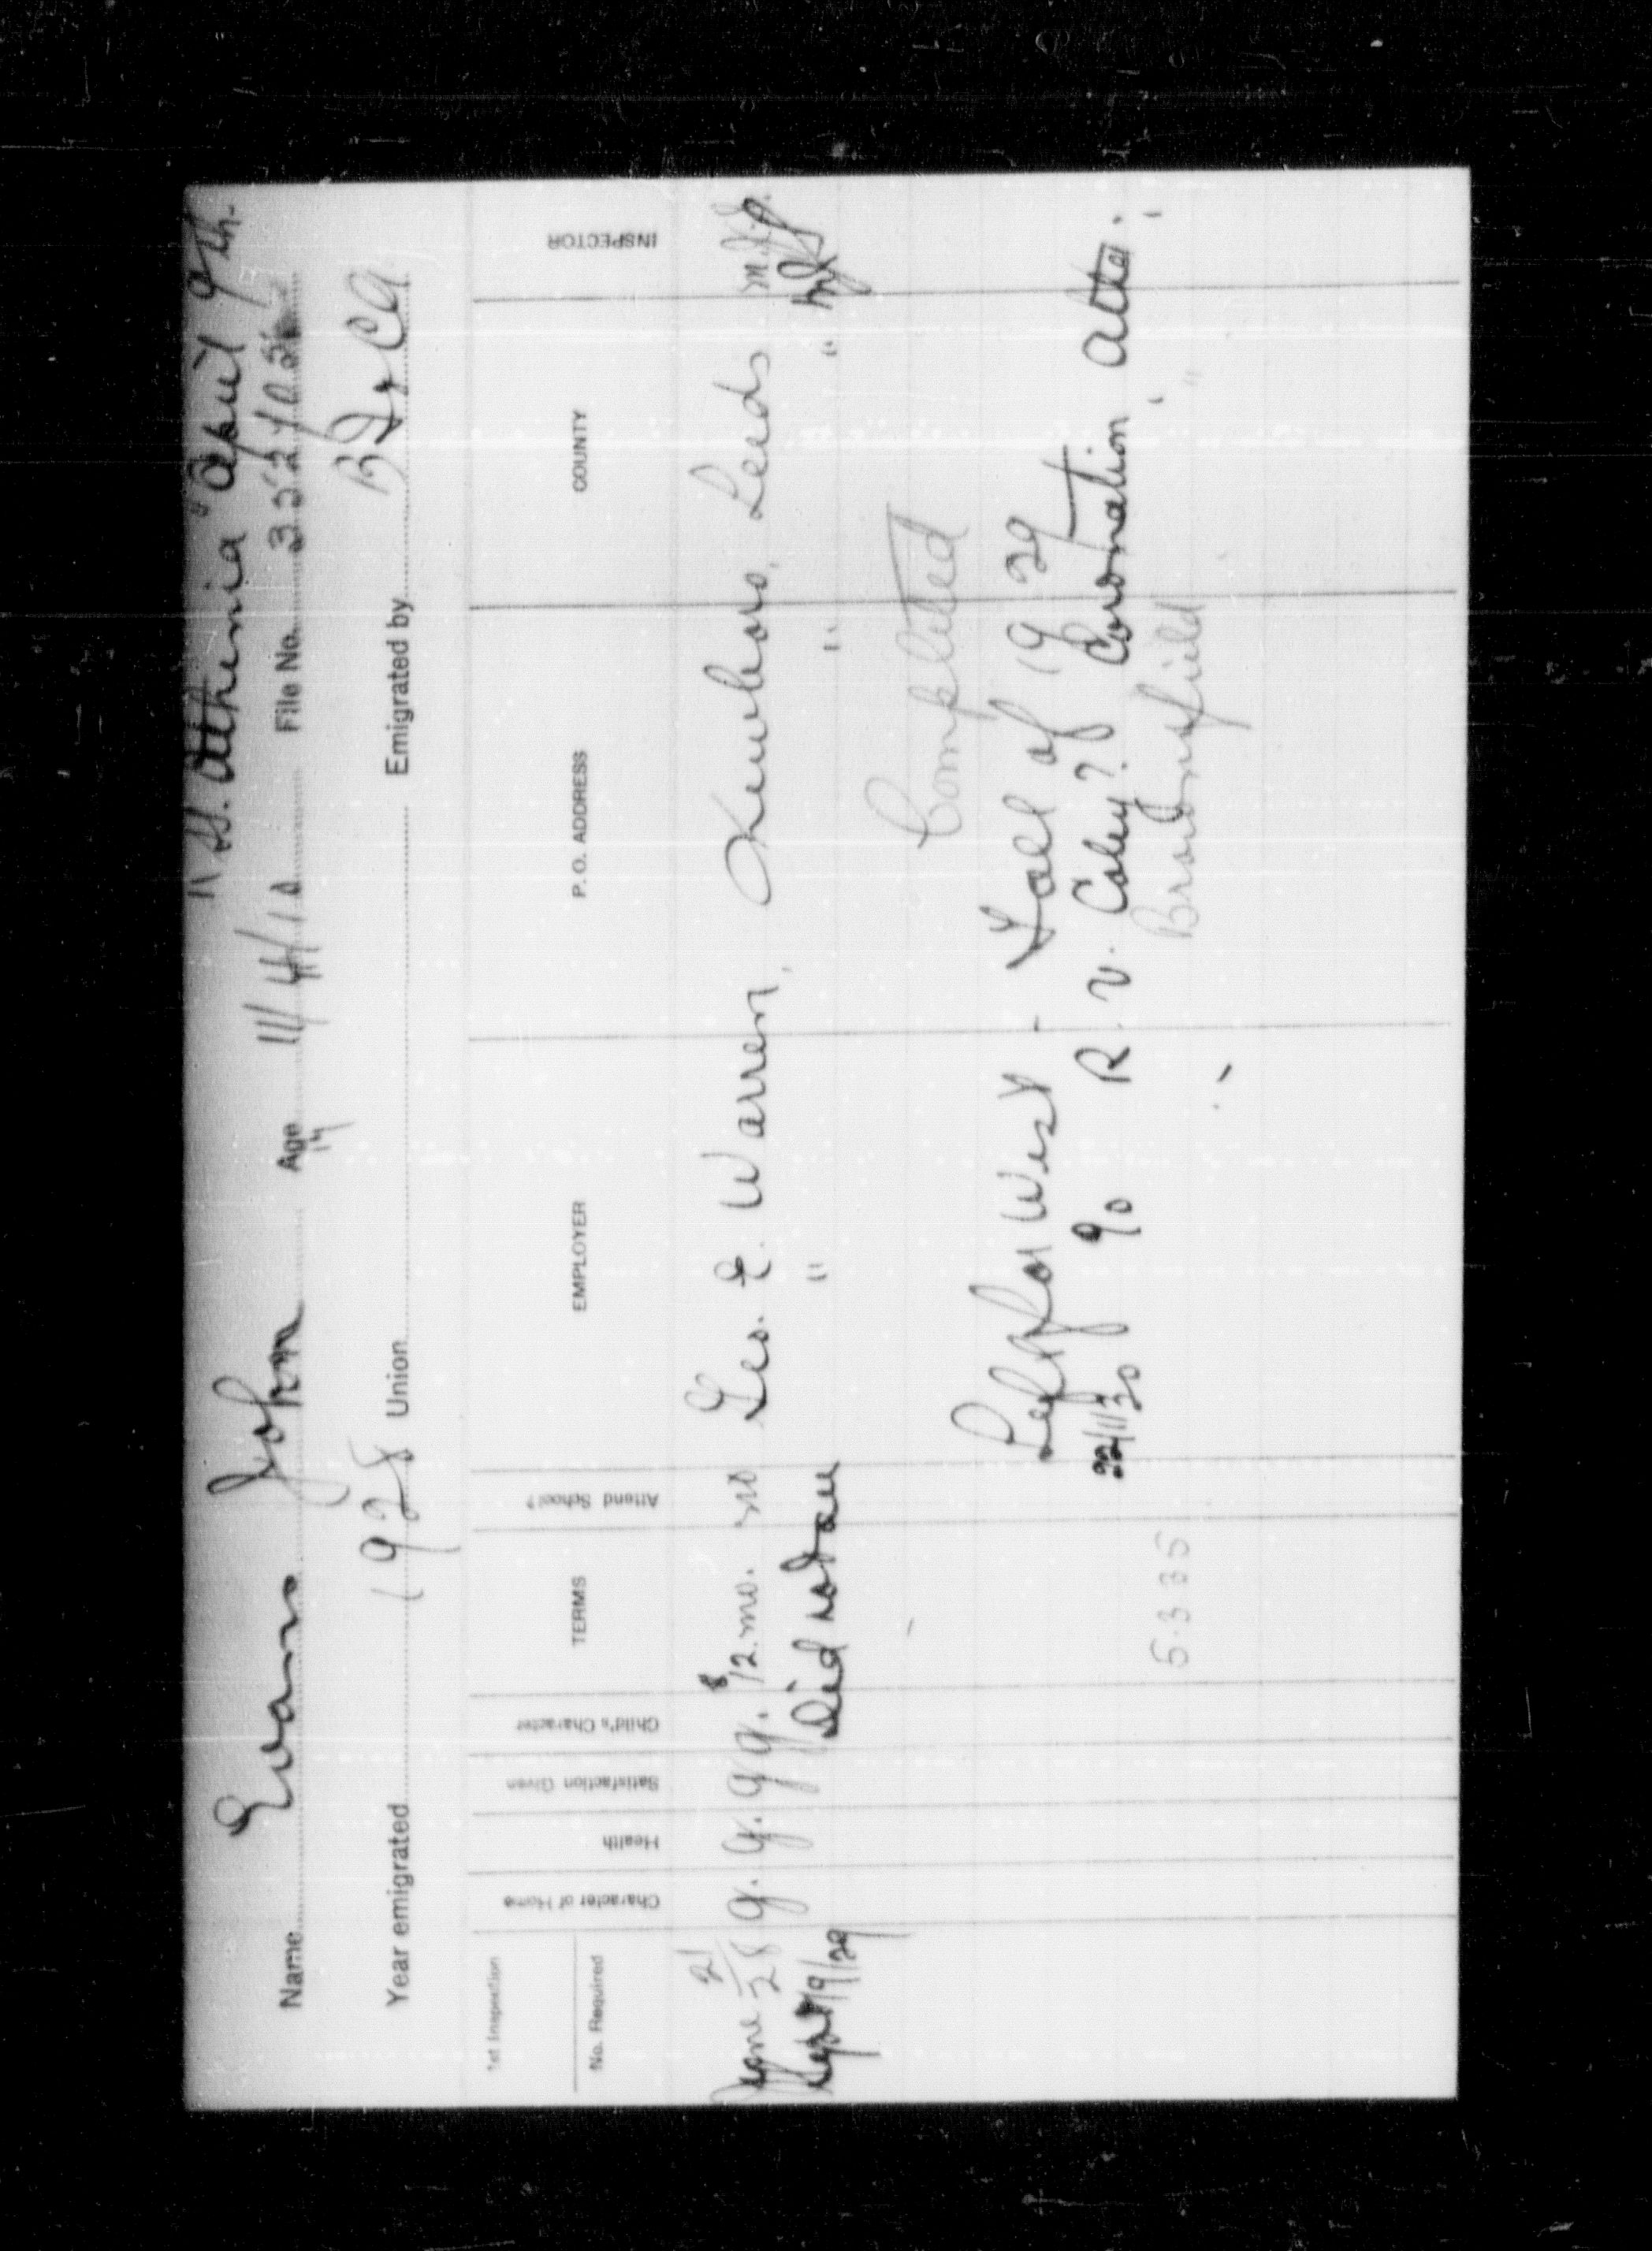 "SS. Athenia" April 9th.
Name Evans John Age 11/4/10 File No.
17
Year emigrated 1928 Union Emigrated by B I & C A
1st Inspection
No. Required
Character of Home Health Satisfaction Given Child's Character TERMS Attend School? EMPLOYER P. O. ADDRESS COUNTY INSPECTOR
June 21/28 g. g. g g. 12 mo. no Geo. E. Warren, Newboro, Leeds
Sept 19/29 Did not see " " "
Completed
Left for West - Fall of 1929
22/11/30 % R. V. Caley? Coronation Alta.
Brownfield " "
5.3.35